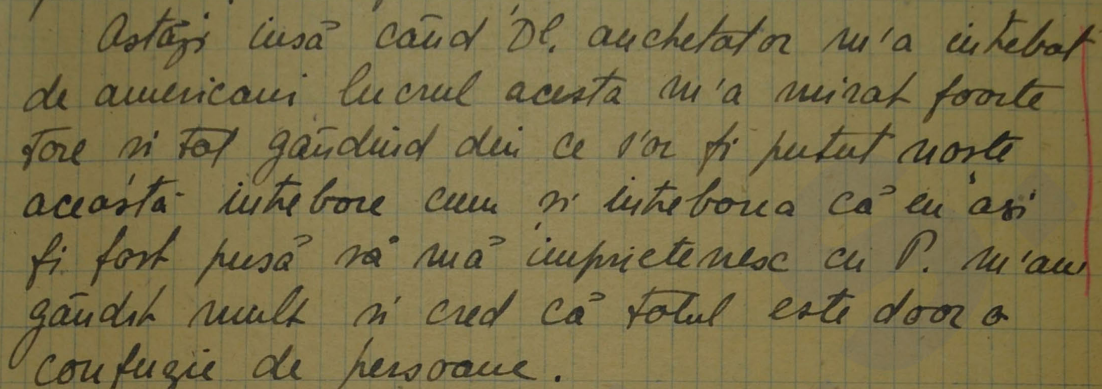 Astăzi însă când Dl. anchetator m'a întrebat
de americani lucrul acesta m'a mirat foarte
tare si tot gândind din ce s'or fi putut naste
această întrebare cum si întrebarea că eu asi
fi fost pusă să mă împrietenesc cu P. m'am
gândit mult si cred că totul este doar o
confuzie de persoane.